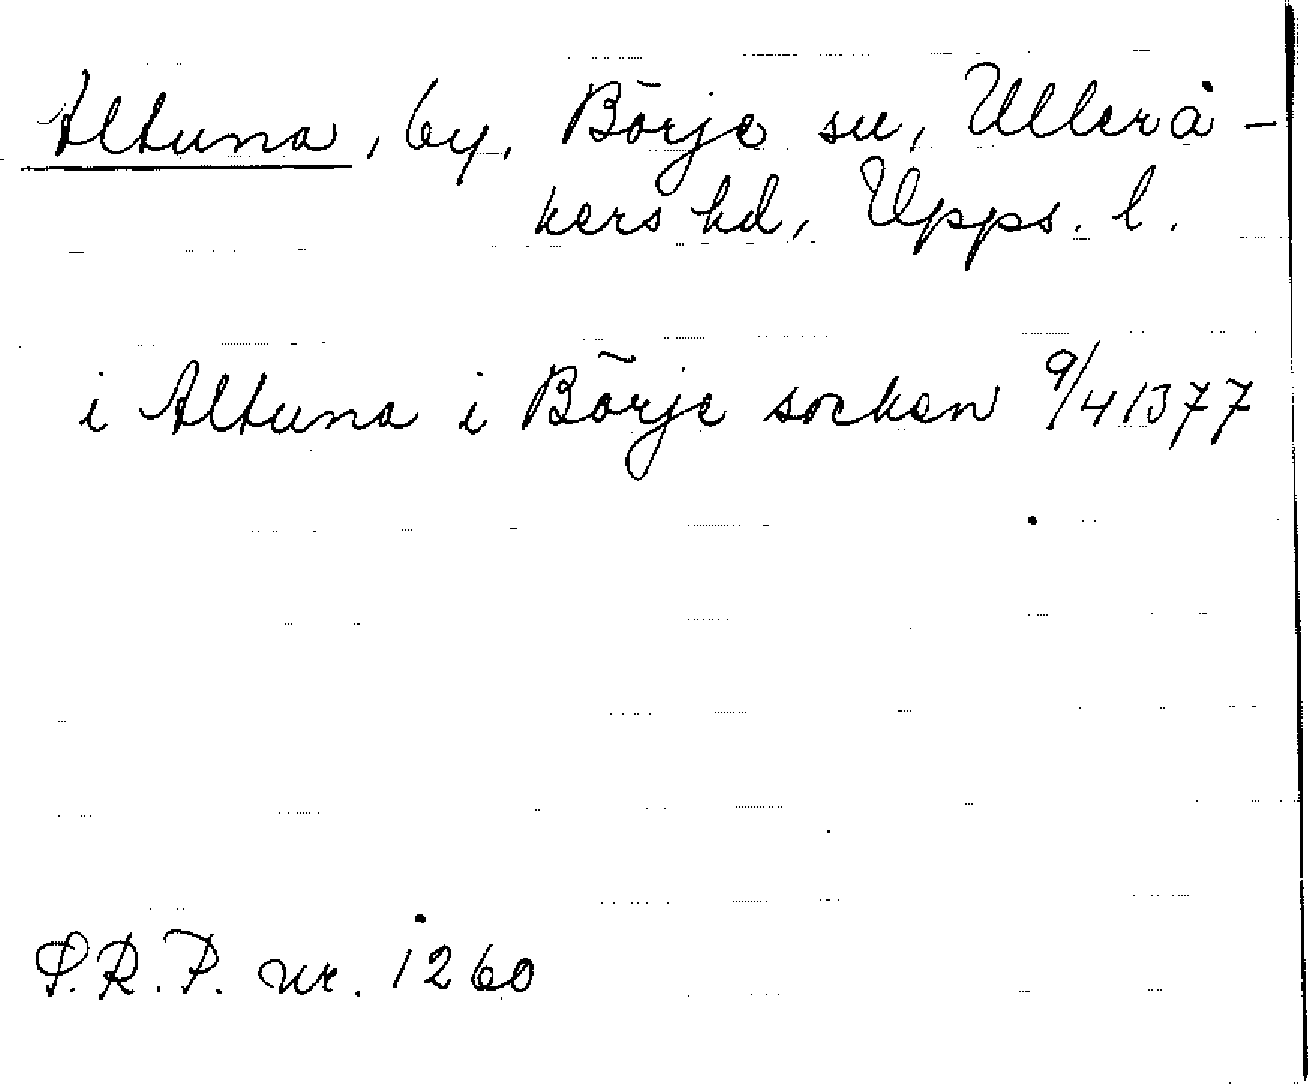 Altuna, by, Börje sn, Ullerå-
kers hd, Upps. l.
i Altuna i Börje socken 9/4 1377
S.R.P. nr. 1260